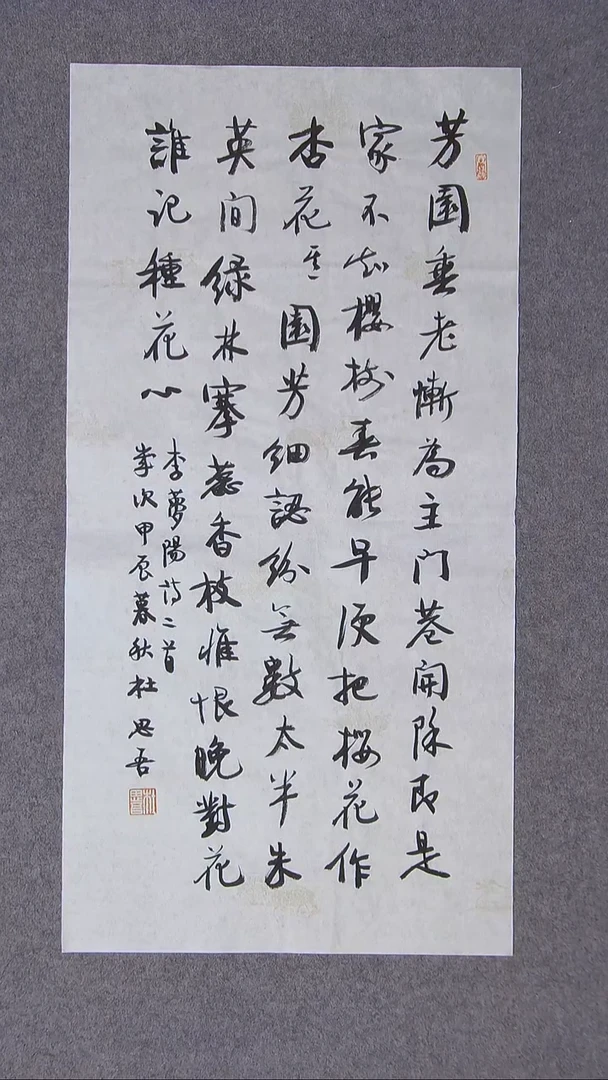 芳園垂老慚為主門巷開除即是
家不知櫻樹春能早便把櫻花作
杏花其一園芳細認紛無數太半朱
英間绿林搴蕊香枝惟恨晚對花
誰记種花心
李夢陽詩二首
岁次甲辰暮秋杜思吾